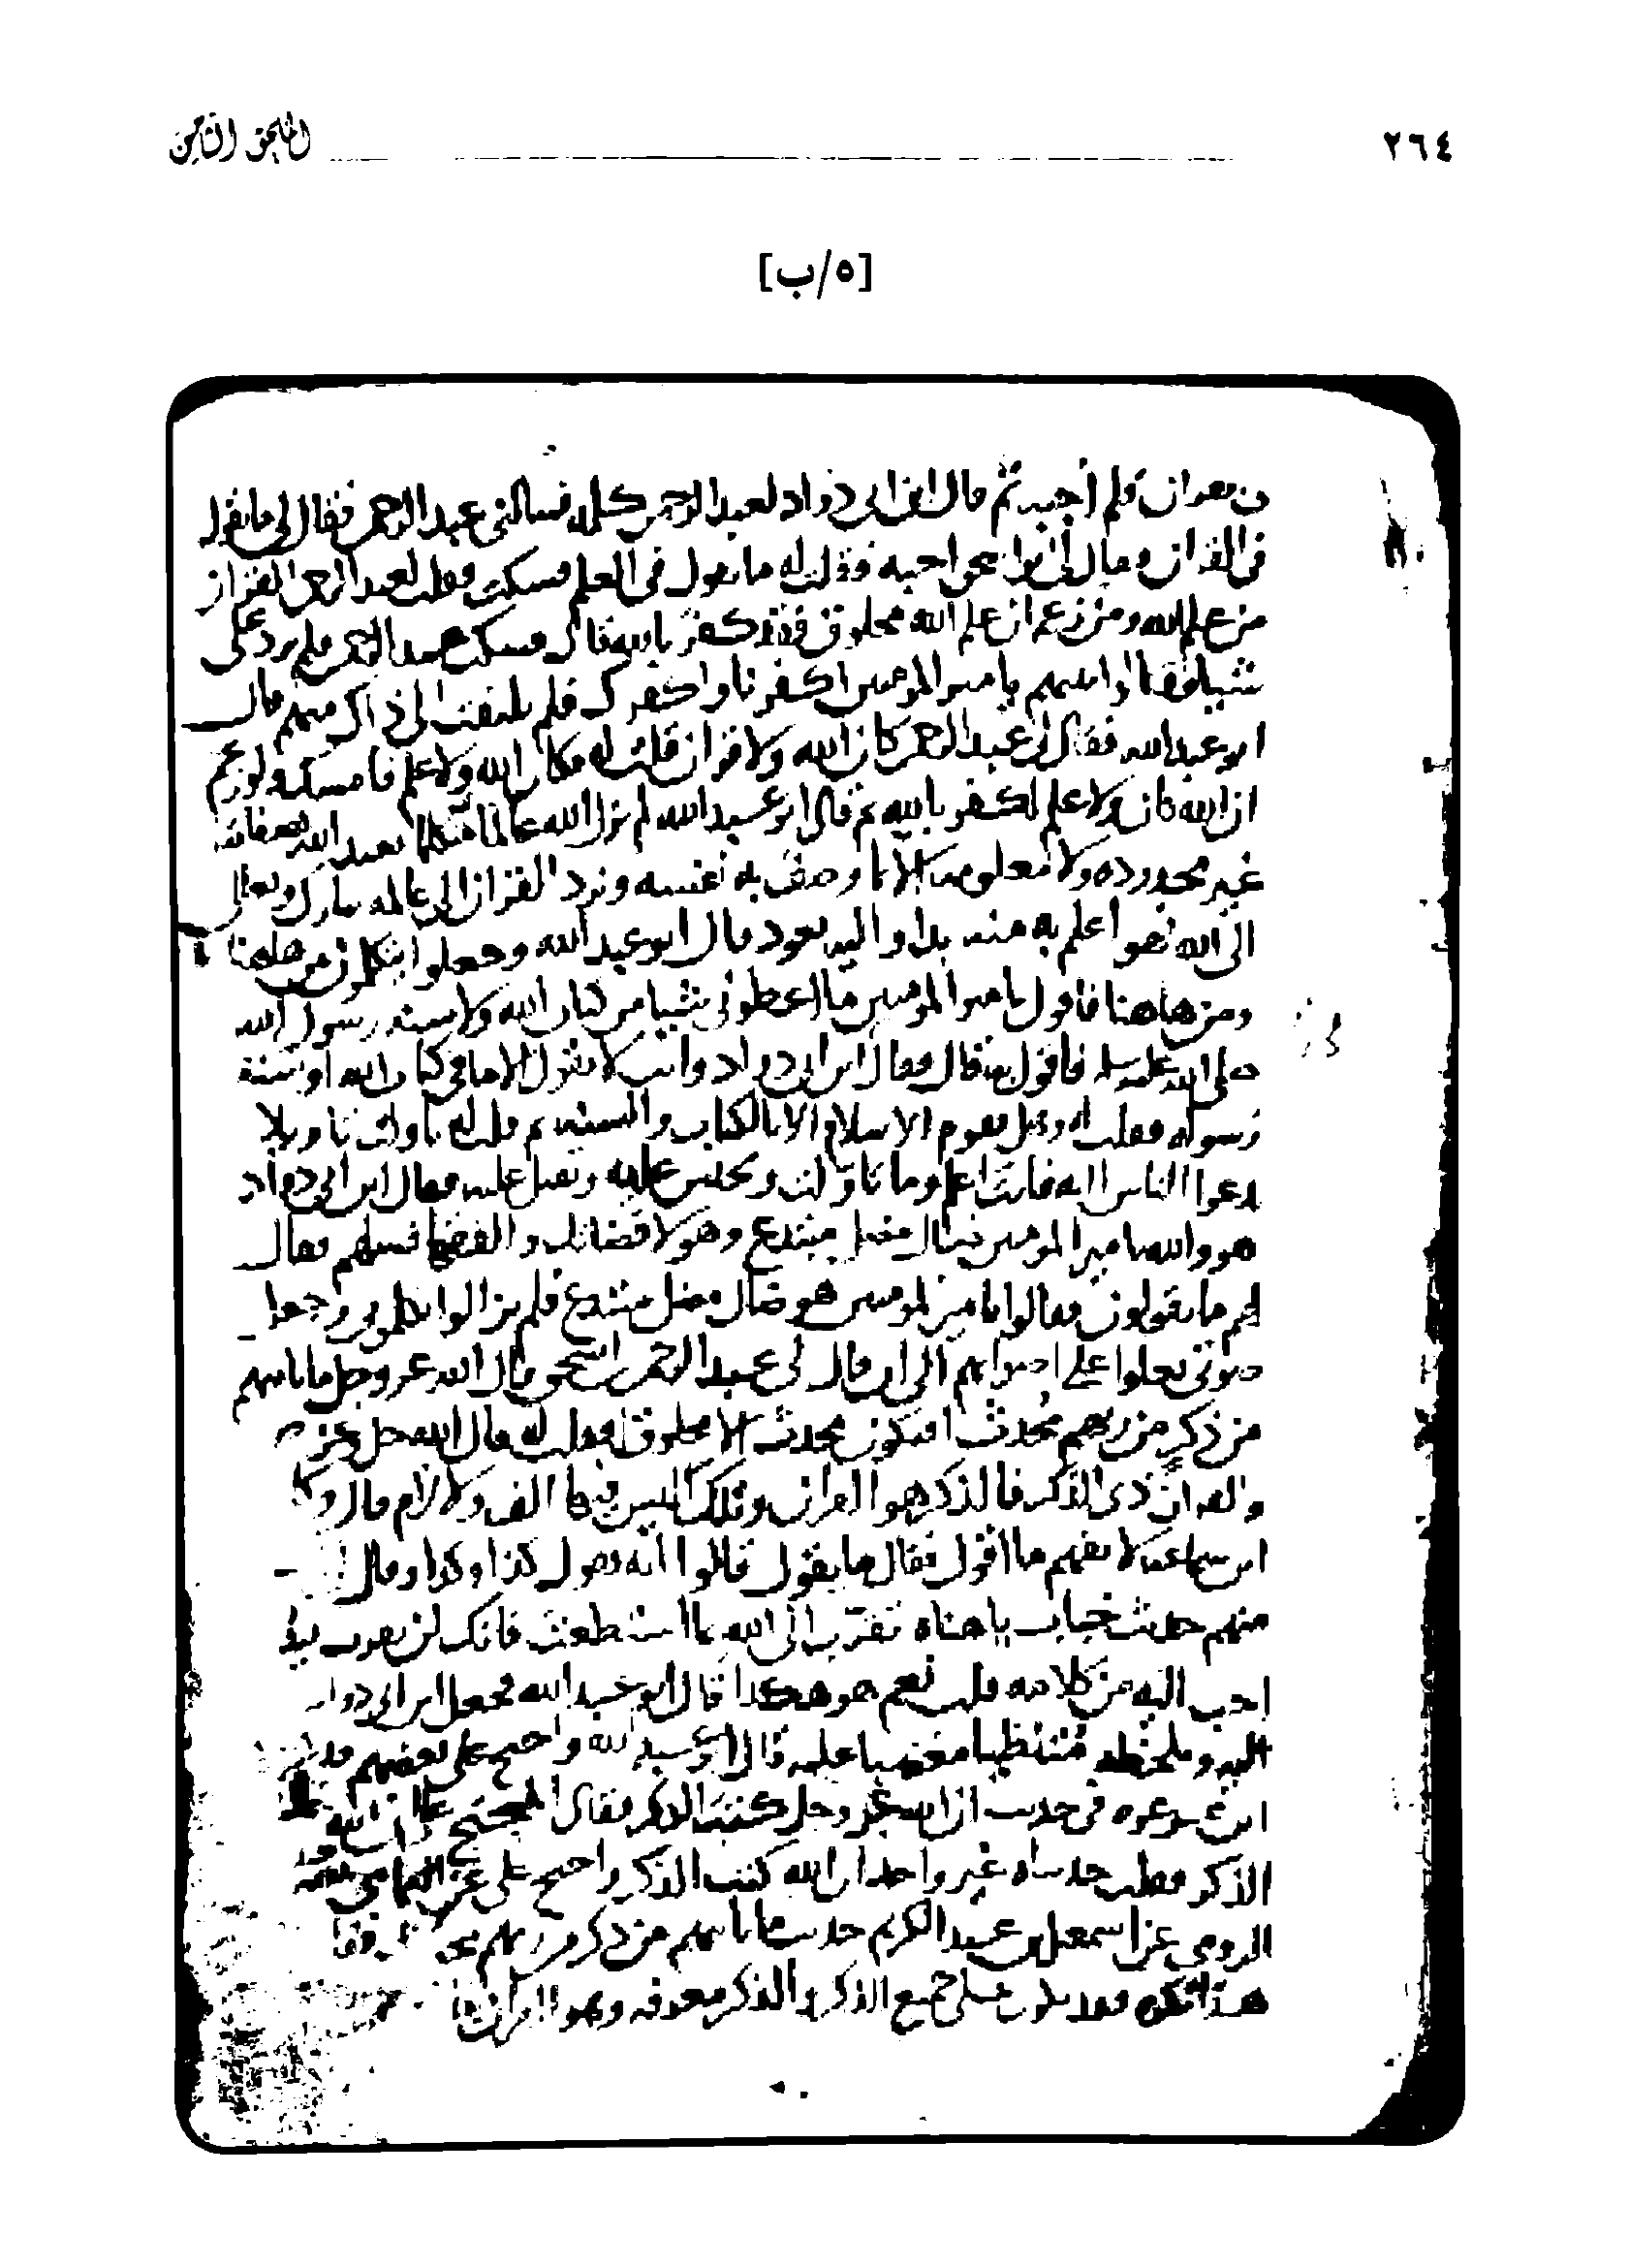 ٢٦٤
الملحق الثامن
[٥/ب]
فلم أجبه ثم قال ابن ابى دواد لعبد الرحمن كلمه فسالنى عبد الرحمن فقال لى ما تقول
فى القران وقال لى ابو اسحق اجبه فقلت له ما تقول فى العلم فسكت فقلت لعبد الرحمن القران
من علم الله ومن زعم ان علم الله مخلوق فقد كفر بالله قال فسكت عبد الرحمن فلم يرد على
شيا فقالوا بينهم يا مير المومنين اكفرنا واكفرك فلم يلتفت الى ذاك منهم قال
ابو عبد الله فقال لى عبد الرحمن كان الله ولا قران قلت له فكان الله ولا علم فامسك ولو زعم
ان الله كان ولا علم لكفر بالله ثم قال ابو عبد الله لم يزل الله عالما متكلما نعبد الله بصفاته
غير محدوده ولا معلومه الا بما وصف به نفسه ونرد القران الى عالمه تبارك وتعالى
الى الله فهو اعلم به منه بدا واليه يعود قال ابو عبد الله وجعلوا يتكلمون من هاهنا
ومن هاهنا فاقول يا مير المومنين ما اعطونى شيا من كتاب الله ولا سنه رسول الله
صلى الله عليه وسلم فاقول به قال فقال ابن ابى دواد وانت لا تقول الا ما فى كتاب الله او سنة
رسوله فقلت له وهل يقوم الاسلام الا بالكتاب والسنه ثم قلت له تاولت تاويلا
تدعوا الناس اليه فانت اعلم وما تاولت وتحبس عليه وتقتل عليه فقال ابن ابى دواد
هو والله يا مير المومنين ضال مضل مبتدع وهولا قضاتك والفقها فسلهم فقال
لهم ما تقولون فقالوا يا مير المومنين هو ضال مضل مبتدع فلم يزالوا يكلمونى وجعل
صوتى يعلوا على اصواتهم الى ان قال لى عبد الرحمن بن اسحق قال الله عز وجل ما ياتيهم
من ذكر من ربهم محدث افيكون محدث الا مخلوق فقلت له قال الله جل وعز ص
والقران ذى الذكر فالذكر هو القران وتلك ليس فيها الف ولا لام قال وكا
ابن سماعه لا يفهم ما اقول فقال ما يقول قالوا انه يقول كذا وكذا وقال
منهم حديث خباب يا هناه تقرب الى الله بما استطعت فانك لن تقرب
احب اليه من كلامه قلت نعم هو هكذا قال ابو عبد الله فجعل ابن ابى دواد
اليه ويلحظه متغيظا مغضبا عليه قال ابو عبد الله واحتج على بعضهم
عز وجل كتب الذكر فقال
الذكر فقلت حدثناه غير واحد ان الله كتب الذكر واحتج على
الرومى عن اسمعيل بن عبد الكريم حديث ما ياتيهم من ذكر من ربهم
هذا نكره فقد يكون على جميع الذكر والذكر معرفه وهو القران